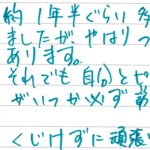 約1年半ぐらい
ましたが、やはりつ
あります。
それでも自分とピ
がいつか必ず
くじけずに頑張